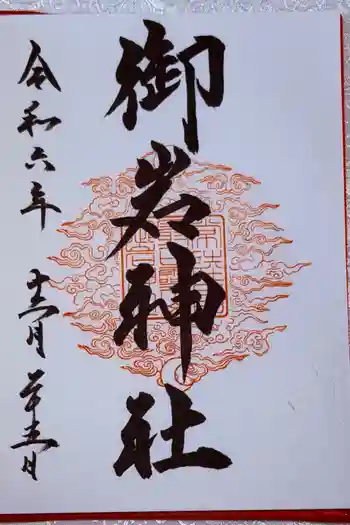 御岩神社
令和六年十二月二十五日